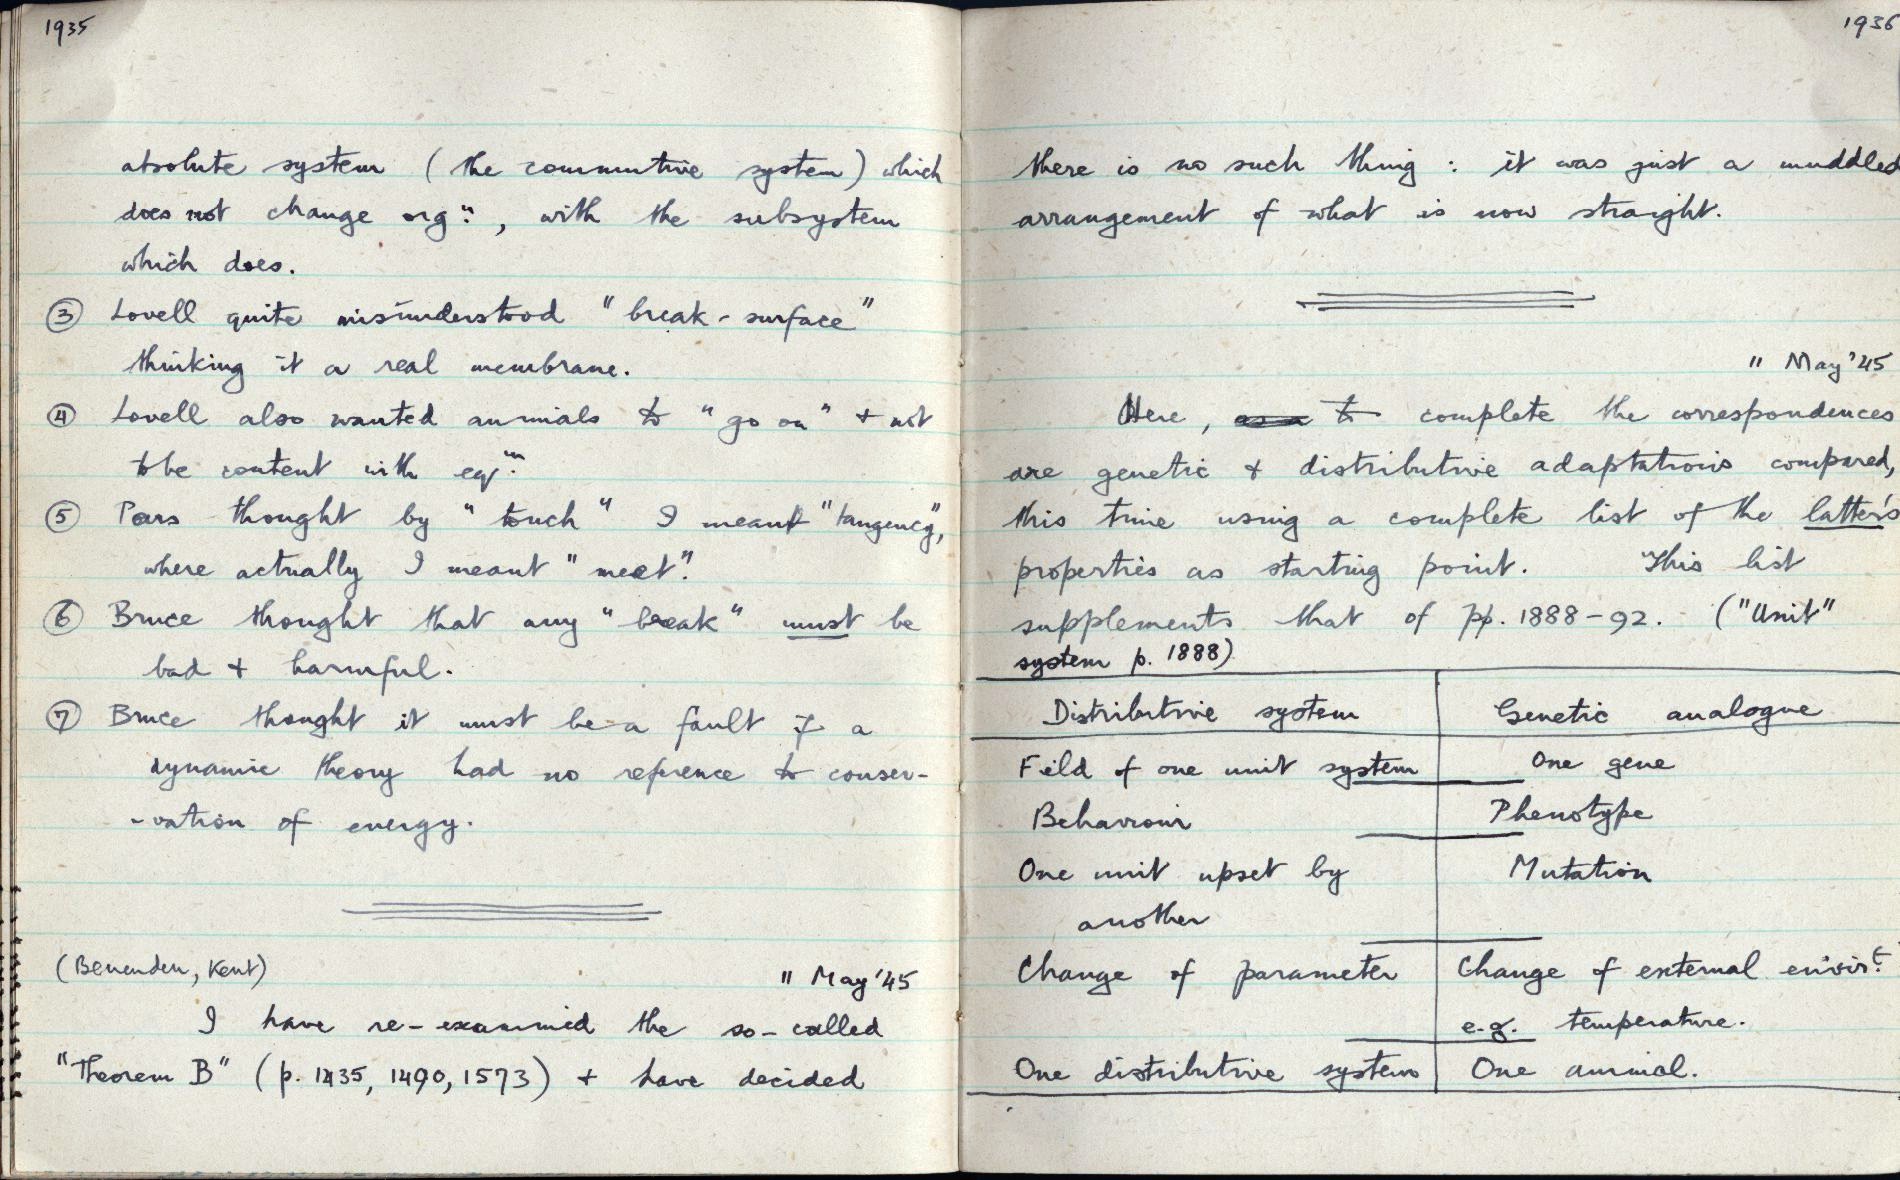 1935
absolute system (the commutive system) which
does not change orgn., with the subsystem
which does.
③ Lovell quite misunderstood "break-surface"
thinking it a real membrane.
④ Lovell also wanted animals to "go on" + not
to be content with eqm.
⑤ Pars thought by "touch" I meant "tangency",
where actually I meant "meet".
⑥ Bruce thought that any "break" must be
bad + harmful.
⑦ Bruce thought it must be a fault if a
dynamic theory had no reference to conser-
-vation of energy.
(Benenden, Kent)
11 May '45
I have re-examined the so-called
"Theorem B" (p. 1435, 1490, 1573) + have decided
1936
there is no such thing : it was just a muddled
arrangement of what is now straight.
11 May '45
Here, to complete the correspondences
are genetic + distributive adaptations compared,
this time using a complete list of the latter's
properties as starting point. This list
supplements that of pp. 1888-92. ("Unit"
system p. 1888)
Distributive system Genetic analogue
Field of one unit system One gene
Behaviour Phenotype
One unit upset by Mutation
another
Change of parameter Change of external envirt.
e.g. temperature.
One distributive system One animal.